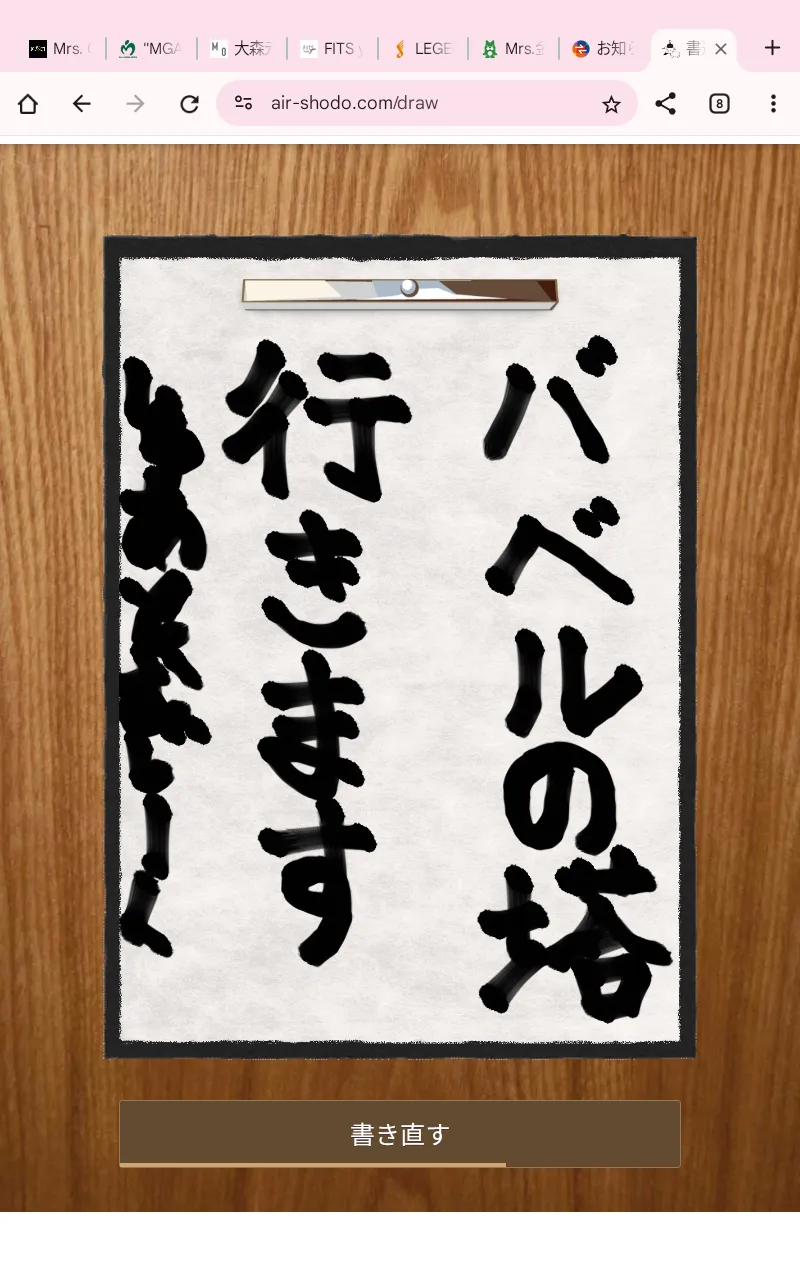 Mrs.
"MGA
大森
FITS
LEGE
Mrs.
お知ら
書
air-shodo.com/draw
8
バベルの塔
行きます
書き直す